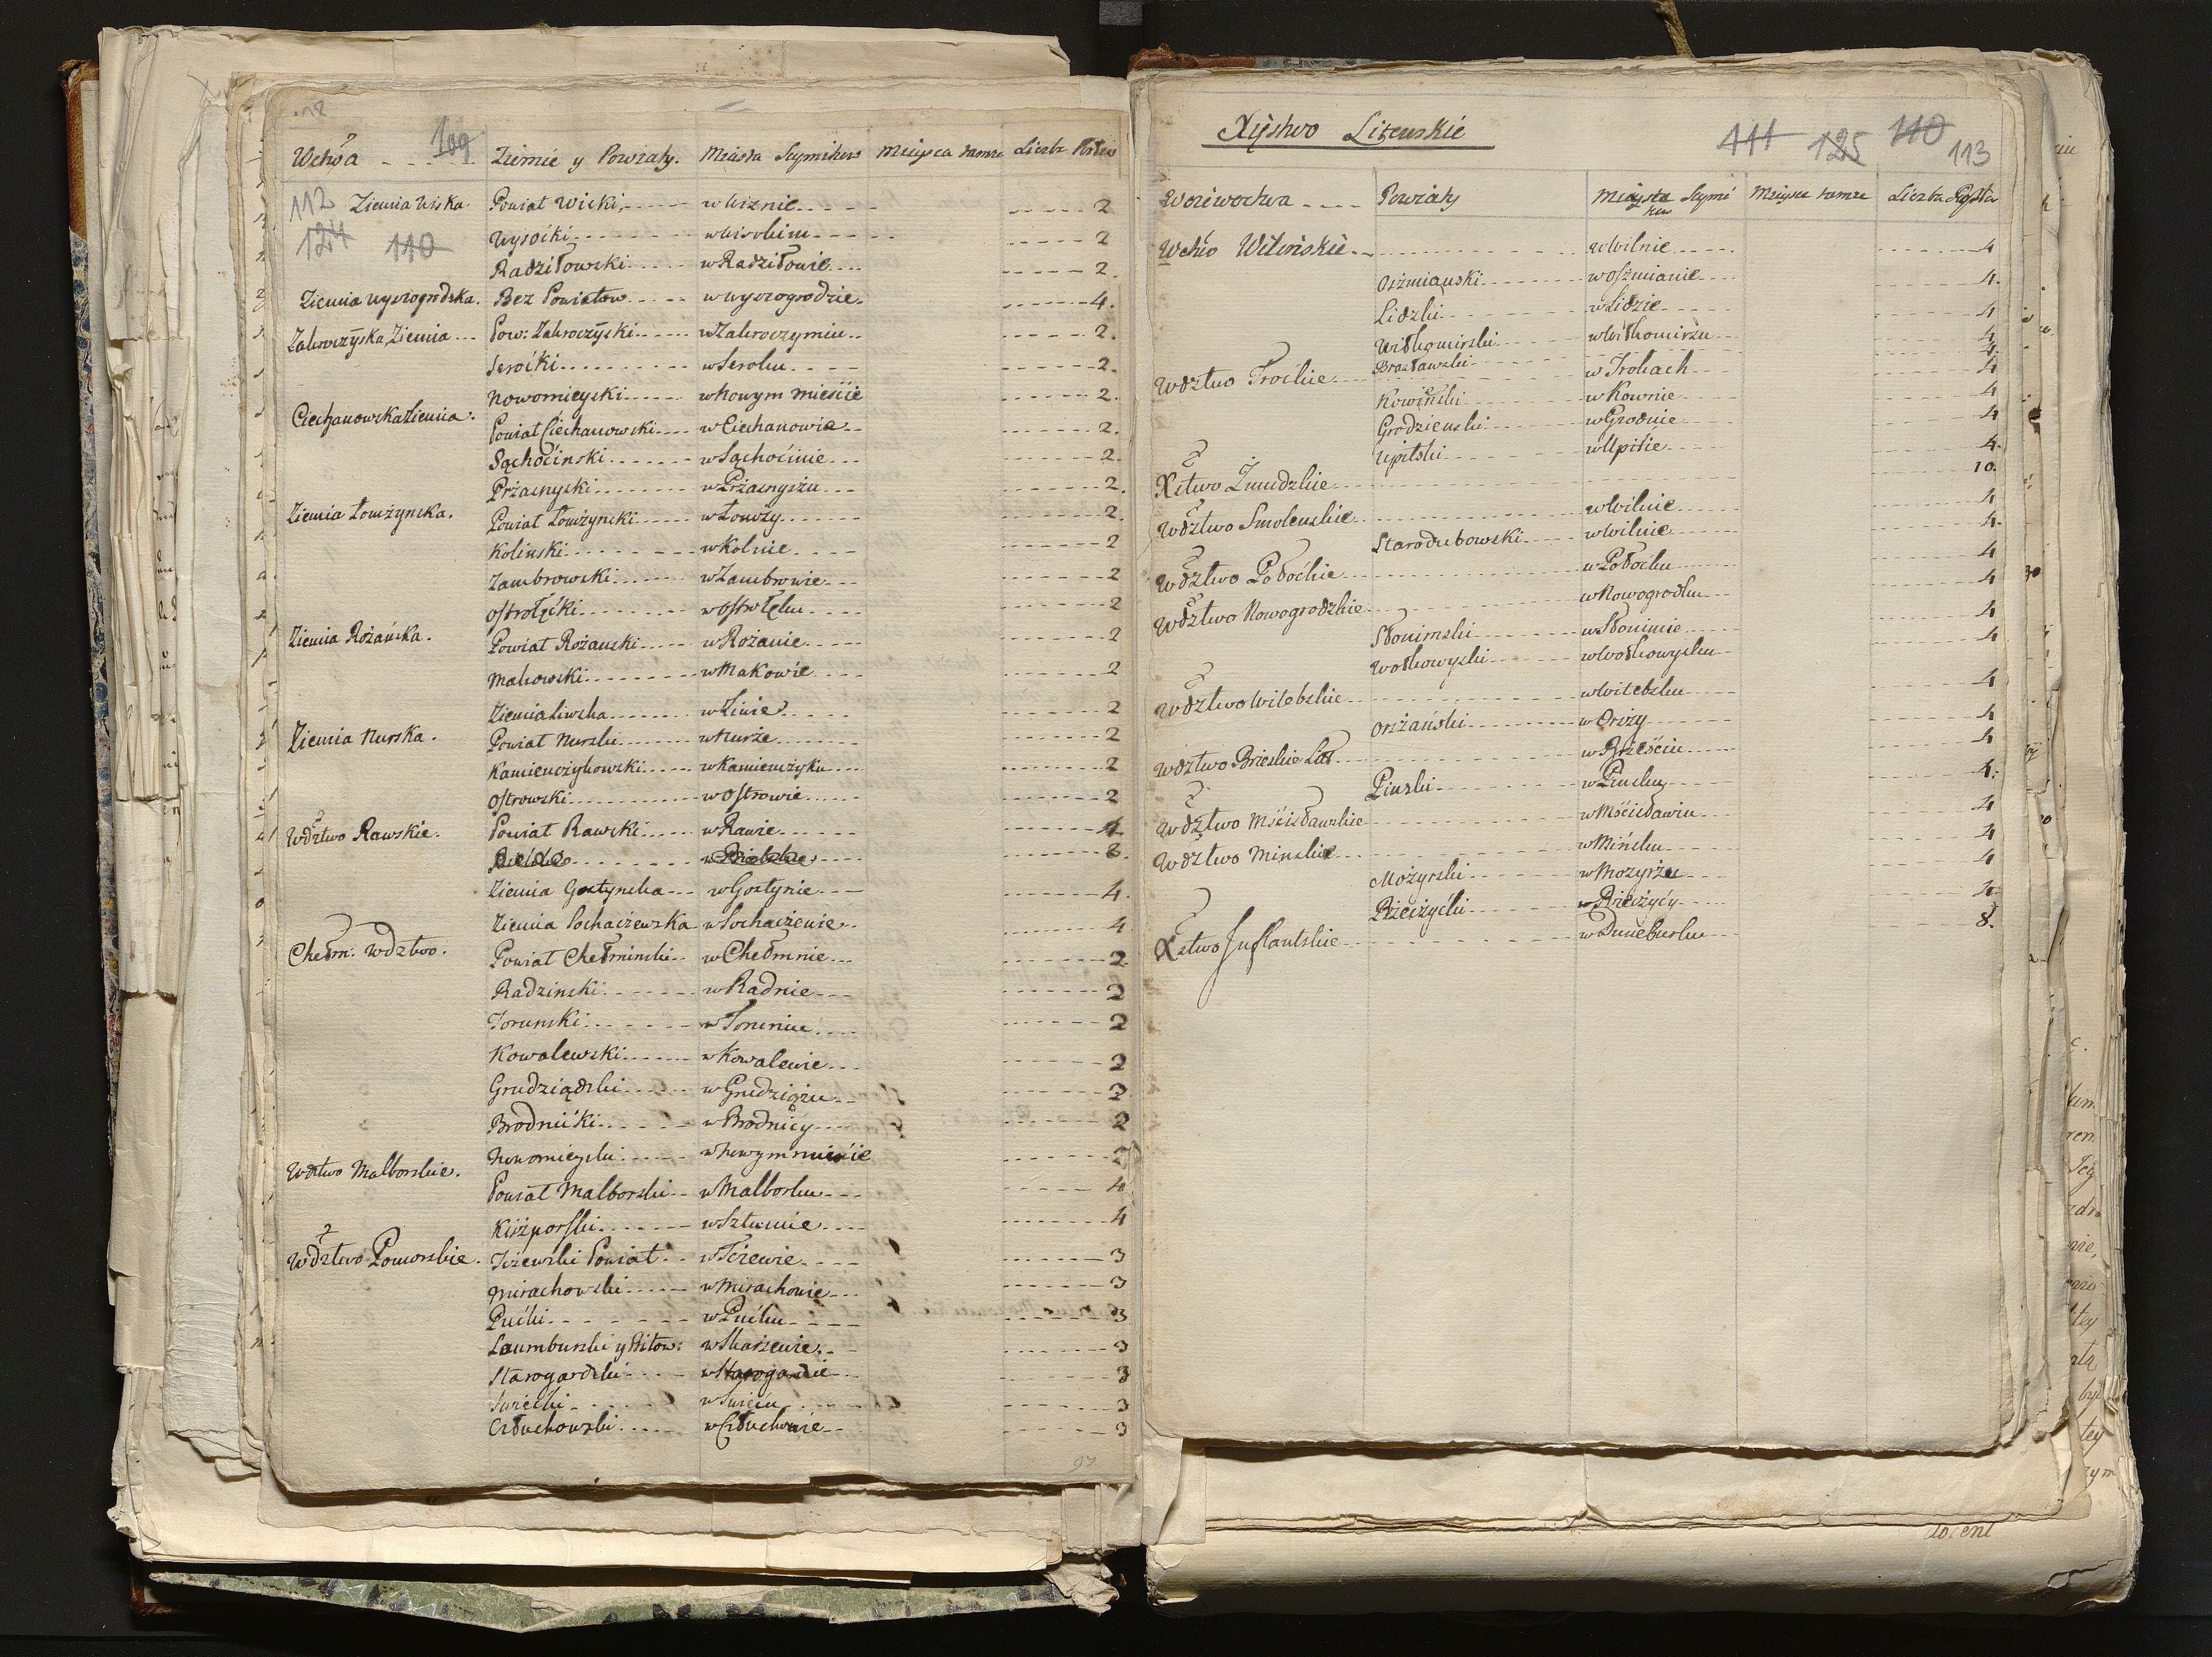 109
Wctwa Ziemie y Powiaty. Miasta Seymikow Mieysca tamze Liczba Posłow
112 Ziemia Wiska. Powiat Wiski, w Wiznie 2
124 110 Wysocki w Wisokim 2
Radziłowski w Radziłowie 2.
Ziemia Wyszogrodska. Bez Powiatow w Wyszogrodzie. 4.
Zakroczyska Ziemia Pow: Zakroczyski w Zakroczymiu 2.
Serocki w Serocku 2.
Nowomieyski w Nowym Mieście 2.
Ciechanowska Ziemia. Powiat Ciechanowski w Ciechanowie 2.
Sąchocinski w Sąchocinie 2.
Przasnyski w Przasnyszu 2.
Ziemia Łomżynska. Powiat Łomżynski w Łomży 2.
Kolinski w Kolnie 2
Zambrowski w Zambrowie 2
Ostrołęcki w Ostrołęku 2
Ziemia Rożańska. Powiat Rożanski w Rożanie 2
Makowski w Makowie 2
Ziemia Liwska w Liwie 2
Ziemia Nurska. Powiat Nurski w Nurze 2
Kamienczykowski w Kamienczyku 2
Ostrowski w Ostrowie 2
Wdztwo Rawskie. Powiat Rawski w Rawie 4
2.
Ziemia Gostynska w Gostynie 4.
Ziemia Sochaczewska w Sochaczewie 4
Chełm: Wdztwo. Powiat Chełminski w Chełmnie 2
Radzinski w Radnie 2
Torunski w Toruniu 2
Kowalewski w Kowalewie 2
Grudziądski w Grudziązu 2
Brodnicki w Brodnicy 2
Nowomieyski w Nowym mieście 2
Wdztwo Malborskie. Powiat Malborski w Malborku 4
Kiszporski w Sztumie 4
Wdztwo Pomorskie. Tczewski Powiat w Tczewie 3
Mirachowski w Mirachowie 3
Pucki w Pucku 3
Laumburski y Bitow: w Skarszewie 3
Starogardski w Starogardie 3
Swiecki w Swieciu 3
Człuchowski w Człuchowie 3
97
Xięstwo Litewskie
111 125 110 113
Woiewodztwa Powiaty Mieysca Seymi kow Mieysca tamze Liczba Posłow
Wctwo Wileńskie w Wilnie 4
Oszmianski w Oszmianie 4.
Lidzki w Lidzie 4
Wiłkomirski w Wiłkomirzu 4
Brasławski 4.
Wdztwo Trockie w Trokach 4
Kowiński w Kownie 4
Grodzienski w Grodnie 4
Upitski w Upicie 4.
Xstwo Żmudzkie 10.
Wdztwo Smolenskie w Wilnie 4
Starodubowski w Wilnie 4.
Wdztwo Połockie w Połocku 4
Wdztwo Nowogrodzkie w Nowogrodku 4
Słonimski w Słonimie 4
Wołkowyski w Wołkowysku 4
Wdztwo Witebskie w Witebsku 4
Orszański w Orszy 4
Wdztwo Brzeskie Lit. w Brześciu 4
Pinski w Pinsku 4.
Wdztwo Mścisławskie w Mścisławiu 4
Wdztwo Minskie w Mińsku 4
Możyrski w Mozyrzu 4
Rzeczycki w Rzeczycy 4
Xstwo Inflantskie w Duneburku 8.